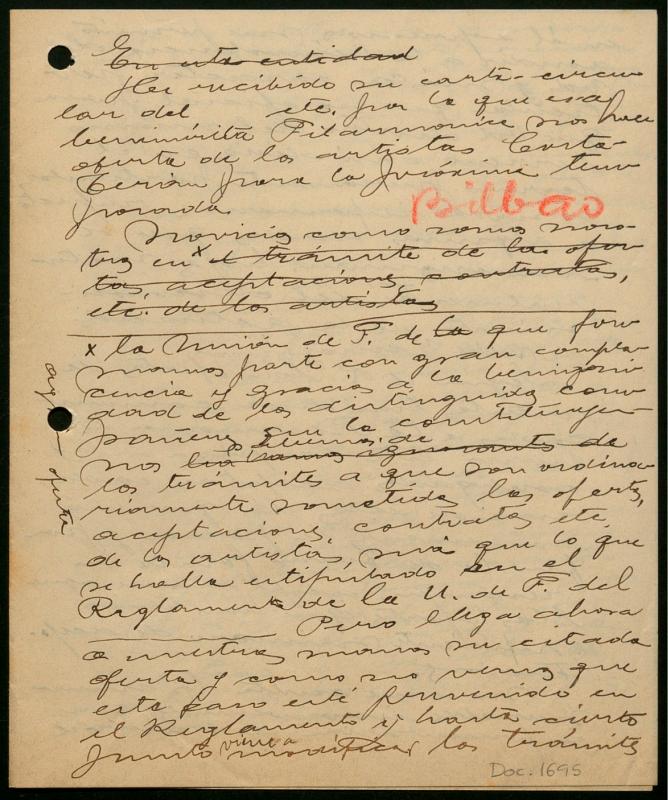 En esta entidad
He recibido su carta-circu
lar del etc. por la que esa
benemérita Filarmónica nos hace
oferta de los artistas Costa-
Terán para la próxima tem
porada.
Bilbao
Novicios como somos noso-
tros en x el trámite de las ofer
tas aceptaciones, contratos,
etc. de los artistas
x la Unión de F. de la que for
mamos parte con gran compla
cencia y gracias a la benigni
dad de los distinguidos com
pañeros que la constituyen
no sabemos de
nos somos ignorants de
los trámites a que son ordina
riamente sometidas las ofertas,
aceptaciones, contratos etc
de los artistas, más que lo que
se halla estipulado en el
Reglamento de la U. de F. del
Pero llega ahora
a nuestras manos su citada
oferta y como no vemos que
este caso esté prevenido en
el Reglamento y hasta cierto
punto viene a modificar los trámites
oferta
Doc. 1695